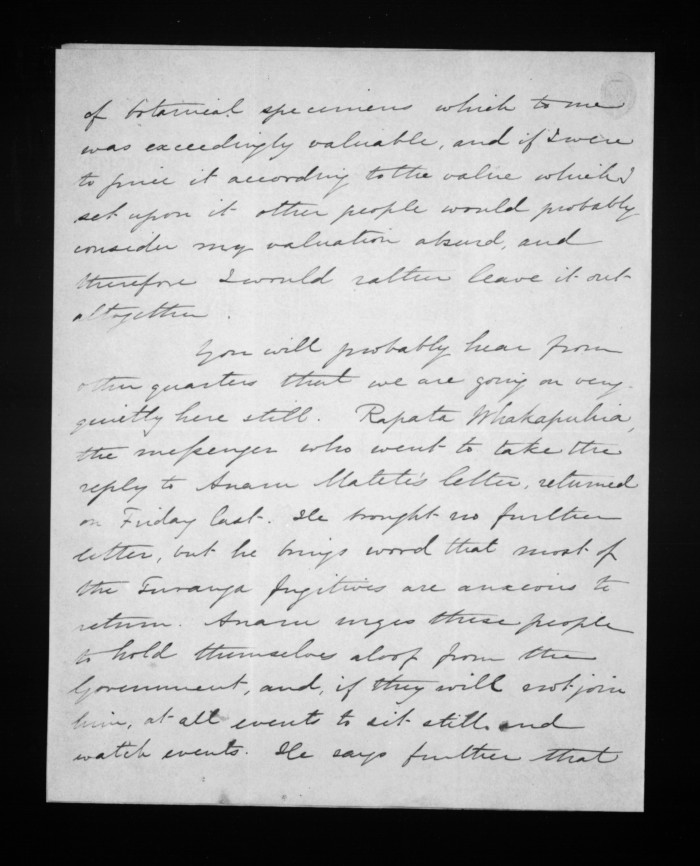 of botanical specimens which to me
was exceedingly valuable, and if I were
to price it according to the value which I
set upon it other people would probably
consider my valuation absurd, and
therefore I would rather leave it out
altogether.
You will probably hear from
other quarters that we are going on very
quietly here still. Rapata Whakapuhia,
the messenger who went to take the
reply to Anaru Matete's letter, returned
on Friday last. He brought no further
letter, but he brings word that most of
the Turanga fugitives are anxious to
return. Anaru urges these people
to hold themselves aloof from the
Government, and, if they will not join
him, at all events to sit still and
watch events. He says further that